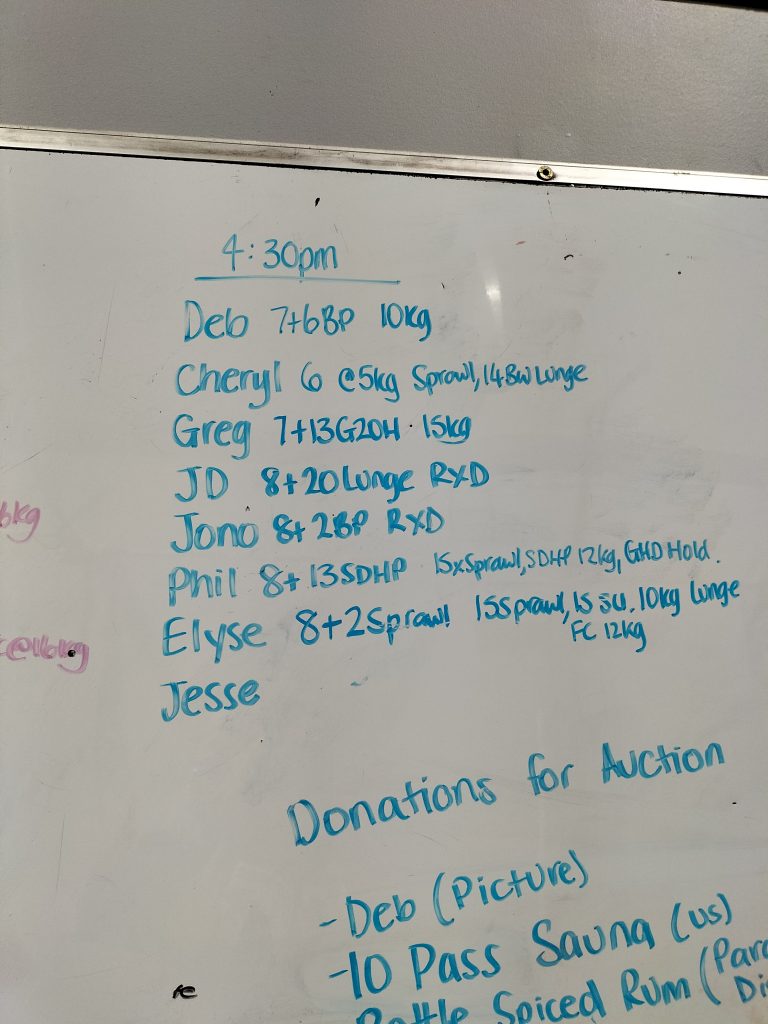 4:30pm
Deb 7+6BP 10kg
Cheryl 6 @5kg Sprawl, 14 BW Lunge
Greg 7+13G2OH 15kg
JD 8+20 Lunge RXD
Jono 8+2BP RXD
Phil 8+13SDHP 15xSprawl, SDHP 12kg, GHD Hold.
Elyse 8+2Sprawl 15Sprawl, 15 SU. 10kg Lunge
FC 12kg
Jesse
6kg
@16kg
Donations for Auction
-Deb (Picture)
-10 Pass Sauna (us)
Bottle Spiced Rum (Para
Di